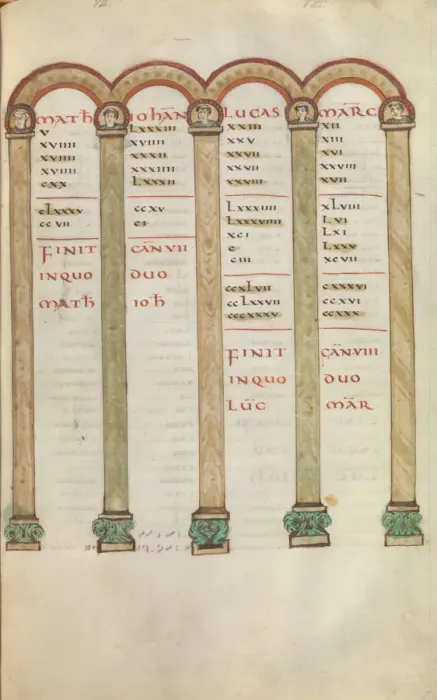 MATH
V
XVIIII
XVIIII
XVIIII
CXX
CLXXXV
CCVII
FINIT
INQUO
MATH
IOHAN
LXXXIII
XVIIII
XXXII
XXXIIII
LXXXII
CCXV
CI
CAN VII
DUO
IOH
LUCAS
XXIIII
XXV
XXVII
XXVII
XXVIII
LXXXIIII
LXXXVIIII
XCI
C
CIII
CCXLVII
CCLXXVII
CCCXXXV
FINIT
INQUO
LUC
MARC
XII
XIII
XVI
XXVIII
XVII
XLVIII
LVI
LXI
LXXV
XCVII
CXXXVI
CCXVI
CCXXX
CAN VIII
DUO
MAR